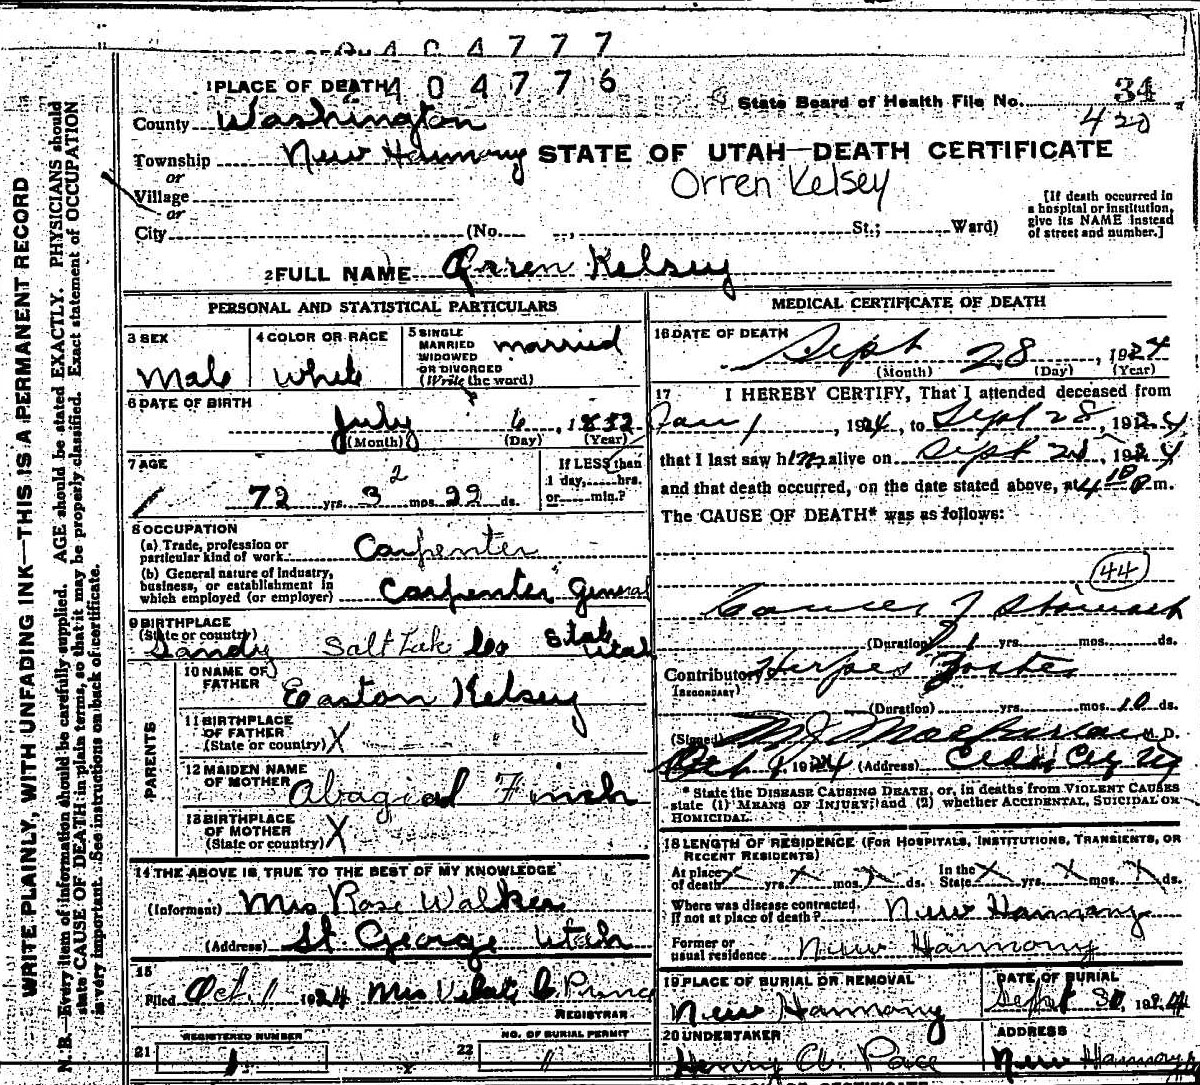 404777
1 PLACE OF DEATH 404776
State Board of Health File No. 34
420
County Washington
Township New Harmony STATE OF UTAH—DEATH CERTIFICATE
or
Orren Kelsey
Village
or
City (No. , St.; Ward)
[If death occurred in
a hospital or institution,
give its NAME instead
of street and number.]
2 FULL NAME Orren Kelsey
PERSONAL AND STATISTICAL PARTICULARS
3 SEX
Male
4 COLOR OR RACE
White
5 SINGLE
MARRIED
WIDOWED
OR DIVORCED
(Write the word)
married
6 DATE OF BIRTH
July 6, 1852
(Month) (Day) (Year)
7 AGE
72 yrs. 3 2 mos. 22 ds.
If LESS than
1 day, hrs.
or min.?
8 OCCUPATION
(a) Trade, profession or
particular kind of work Carpenter
(b) General nature of industry,
business, or establishment in
which employed (or employer) Carpenter General
9 BIRTHPLACE
(State or country)
Sandy Salt Lake Co State Utah
PARENTS
10 NAME OF
FATHER Easton Kelsey
11 BIRTHPLACE
OF FATHER
(State or country) X
12 MAIDEN NAME
OF MOTHER Abagial Finch
13 BIRTHPLACE
OF MOTHER
(State or country) X
14 THE ABOVE IS TRUE TO THE BEST OF MY KNOWLEDGE
(Informant) Mrs Rose Walker
(Address) St George Utah
15
Filed Oct. 1 1924 Mrs
REGISTRAR
REGISTERED NUMBER
21 1
NO. OF BURIAL PERMIT
22 11
MEDICAL CERTIFICATE OF DEATH
16 DATE OF DEATH
Sept 28, 1924
(Month) (Day) (Year)
17 I HEREBY CERTIFY, That I attended deceased from
Jan 1, 1924, to Sept 28, 1924
that I last saw him alive on Sept 28, 1924
and that death occurred, on the date stated above, at 4 10 P m.
The CAUSE OF DEATH* was as follows:
44
Cancer of Stomach
(Duration) 1 yrs. mos. ds.
Contributory Herpes Zoster
(SECONDARY)
(Duration) yrs. mos. 10 ds.
(Signed) M. J. Macfarlane M. D.
Oct 1 1924 (Address) Cedar City Ut
* State the DISEASE CAUSING DEATH, or, in deaths from VIOLENT CAUSES
state (1) MEANS OF INJURY; and (2) whether ACCIDENTAL, SUICIDAL OR
HOMICIDAL.
18 LENGTH OF RESIDENCE (FOR HOSPITALS, INSTITUTIONS, TRANSIENTS, OR
RECENT RESIDENTS)
At place
of death X yrs. X mos. X ds.
In the
State X yrs. X mos. X ds.
Where was disease contracted,
if not at place of death? New Harmony
Former or
usual residence New Harmony
19 PLACE OF BURIAL OR REMOVAL
New Harmony
DATE OF BURIAL
Sept 30, 1924
20 UNDERTAKER
Henry A. Pace
ADDRESS
New Harmony
WRITE PLAINLY, WITH UNFADING INK—THIS IS A PERMANENT RECORD
N. B.—Every item of information should be carefully supplied. AGE should be stated EXACTLY. PHYSICIANS should
state CAUSE OF DEATH in plain terms, so that it may be properly classified. Exact statement of OCCUPATION
is very important. See instructions on back of certificate.